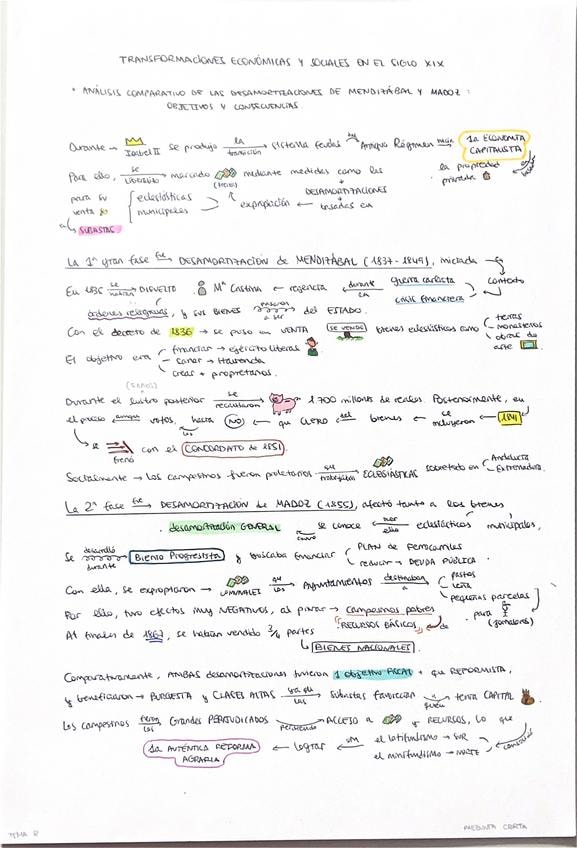 TRANSFORMACIONES ECONÓMICAS Y SOCIALES EN EL SIGLO XIX
* ANÁLISIS COMPARATIVO DE LAS DESAMORTIZACIONES DE MENDIZÁBAL Y MADOZ :
OBJETIVOS Y CONSECUENCIAS
Durante → Isabel II se produjo la transición → sistema feudal Antiguo Régimen hacia la ECONOMÍA
CAPITALISTA
Para ello, se liberalizó → mercado (tierras) mediante medidas como las
la propiedad
privada
para su
venta
eclesiásticas
municipales
expropiación ← basadas en
DESAMORTIZACIONES
en SUBASTAS
La 1ª gran fase fue → DESAMORTIZACIÓN de MENDIZÁBAL (1837-1849), iniciada →
En 1836 se habían → DISUELTO Mª Cristina ← regencia ← durante la
guerra carlista
crisis financiera
contexto
órdenes religiosas, y sus BIENES pasaron a ser del ESTADO.
Con el decreto de 1836 → se puso en VENTA SE VENDE bienes eclesiásticos como
tierras
monasterios
obras de
arte
El objetivo era
financiar → ejército liberal
sanar → Hacienda
crear + propietarios.
(5 AÑOS)
Durante el lustro posterior se recaudaron → 1700 millones de reales. Posteriormente, en
el proceso ← aunque votos, hacia los NO ← que CLERO ← del bienes ← se incluyeron ← 1841
↳ se frenó con el CONCORDATO de 1851.
Socialmente → Los campesinos fueron proletarios que trabajaban ECLESIÁSTICAS sobretodo en
Andalucía
Extremadura.
La 2ª fase fue → DESAMORTIZACIÓN de MADOZ (1855), afectó tanto a los bienes
desamortización GENERAL ← se conoce como ← por ello eclesiásticos municipales,
Se desarrolló durante BIENIO PROGRESISTA y buscaba financiar
PLAN de Ferrocarriles
reducir → DEUDA PÚBLICA.
Con ella, se expropiaron → COMUNALES que los Ayuntamientos destinaban a
pastos
leña
pequeñas parcelas
Por ello, tuvo efectos MUY NEGATIVOS, al privar → campesinos pobres
para
(jornaleros)
RECURSOS BÁSICOS de
At finales de 1867, se habían vendido 3/4 partes
↳ BIENES NACIONALES.
Comparativamente, AMBAS desamortizaciones tuvieron 1 objetivo FISCAL + que REFORMISTA,
y beneficiaron → BURGUESÍA y CLASES ALTAS ya que las Subastas favorecían a quien tenía CAPITAL
Los campesinos fueron los Grandes PERJUDICADOS perdiendo → ACCESO a y RECURSOS, lo que
la AUTÉNTICA REFORMA
AGRARIA ← lograr ← sin
el latifundismo → SUR
el minifundismo → NORTE
consolidó
TEMA 8
PREGUNTA CORTA